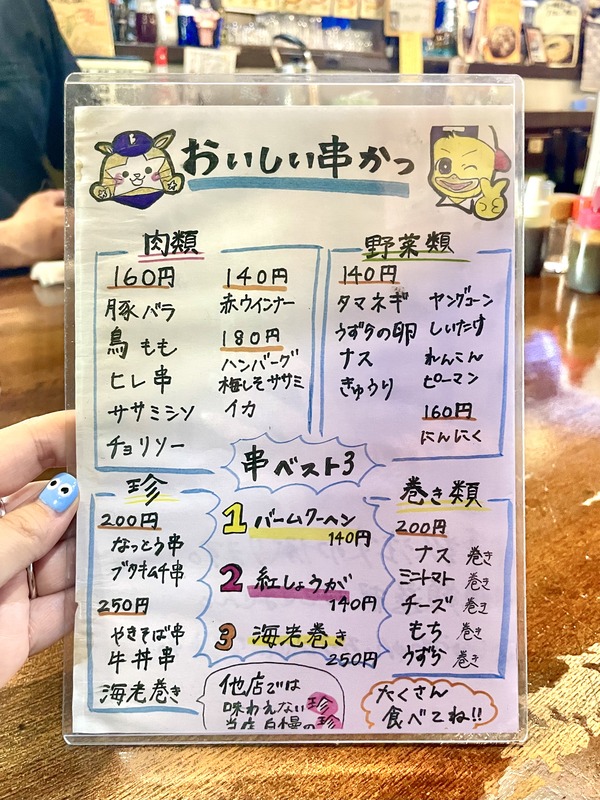 おいしい串かつ
肉類
160円
豚バラ
鳥もも
ヒレ串
ササミシソ
チョリソー
140円
赤ウインナー
180円
ハンバーグ
梅しそササミ
イカ
野菜類
140円
タマネギ
うずらの卵
ナス
きゅうり
ヤングコーン
しいたけ
れんこん
ピーマン
160円
にんにく
串ベスト3
1 バームクーヘン
140円
2 紅しょうが
140円
3 海老巻き
250円
珍
200円
なっとう串
ブタキムチ串
250円
やきそば串
牛丼串
海老巻き
巻き類
200円
ナス 巻き
ミニトマト 巻き
チーズ 巻き
もち 巻き
うずら 巻き
他店では
味わえない珍
当店自慢の珍
たくさん
食べてね!!